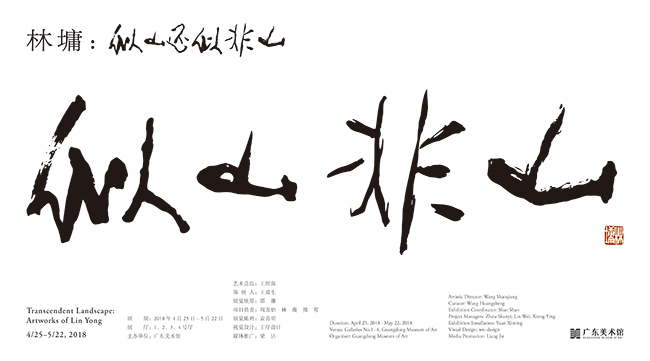 林墉：似山还似非山
似山非山
Transcendent Landscape:
Artworks of Lin Yong
4/25–5/22, 2018
展　　期：2018年4月25日-5月22日
展　　厅：1、2、3、4号厅
主办单位：广东美术馆
艺术总监：王绍强
策 展 人：王璜生
展览统筹：邵珊
展览陈列：袁喜明
视觉设计：王序设计
媒体推广：梁洁
Duration: April 25, 2018 - May 22, 2018
Venue: Galleries No.1 - 4, Guangdong Museum of Art
Organizer: Guangdong Museum of Art
Artistic Director: Wang Shaoqiang
Curator: Wang Huangsheng
Exhibition Coordinator: Shao Shan
Exhibition Installation: Yuan Ximing
Visual Design: wx-design
Media Promotion: Liang Jie
广东美术馆
GUANGDONG MUSEUM OF ART